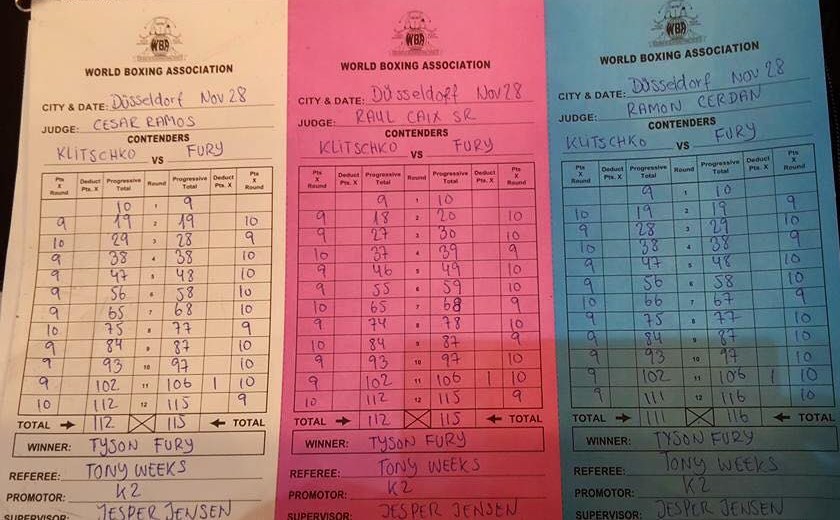 WBA
WORLD BOXING ASSOCIATION
CITY & DATE: Düsseldorf Nov 28
JUDGE: CESAR RAMOS
CONTENDERS
KLITSCHKO VS FURY
Pts X Round Deduct Pts. X Progressive Total Round Progressive Total Deduct Pts. X Pts X Round
10 1 9
9 19 2 19 10
10 29 3 28 9
9 38 4 38 10
9 47 5 48 10
9 56 6 58 10
9 65 7 68 10
10 75 8 77 9
9 84 9 87 10
9 93 10 97 10
9 102 11 106 1 10
10 112 12 115 9
TOTAL → 112 115 ← TOTAL
WINNER: TYSON FURY
REFEREE: TONY WEEKS
PROMOTOR: K2
SUPERVISOR: JESPER JENSEN
WBA
WORLD BOXING ASSOCIATION
CITY & DATE: Düsseldorf Nov 28
JUDGE: RAUL CAIX SR.
CONTENDERS
KLITSCHKO VS FURY
Pts X Round Deduct Pts. X Progressive Total Round Progressive Total Deduct Pts. X Pts X Round
9 1 10
9 18 2 20 10
9 27 3 30 10
10 37 4 39 9
9 46 5 49 10
9 55 6 59 10
10 65 7 68 9
9 74 8 78 10
10 84 9 87 9
9 93 10 97 10
9 102 11 106 1 10
10 112 12 115 9
TOTAL → 112 115 ← TOTAL
WINNER: TYSON FURY
REFEREE: TONY WEEKS
PROMOTOR: K2
SUPERVISOR: JESPER JENSEN
WBA
WORLD BOXING ASSOCIATION
CITY & DATE: Düsseldorf Nov 28
JUDGE: RAMON CERDAN
CONTENDERS
KLITSCHKO VS FURY
Pts X Round Deduct Pts. X Progressive Total Round Progressive Total Deduct Pts. X Pts X Round
9 1 10
10 19 2 19 9
9 28 3 29 10
10 38 4 38 9
9 47 5 48 10
9 56 6 58 10
10 66 7 67 9
9 75 8 77 10
9 84 9 87 10
9 93 10 97 10
9 102 11 106 1 10
9 111 12 116 10
TOTAL → 111 116 ← TOTAL
WINNER: TYSON FURY
REFEREE: TONY WEEKS
PROMOTOR: K2
SUPERVISOR: JESPER JENSEN